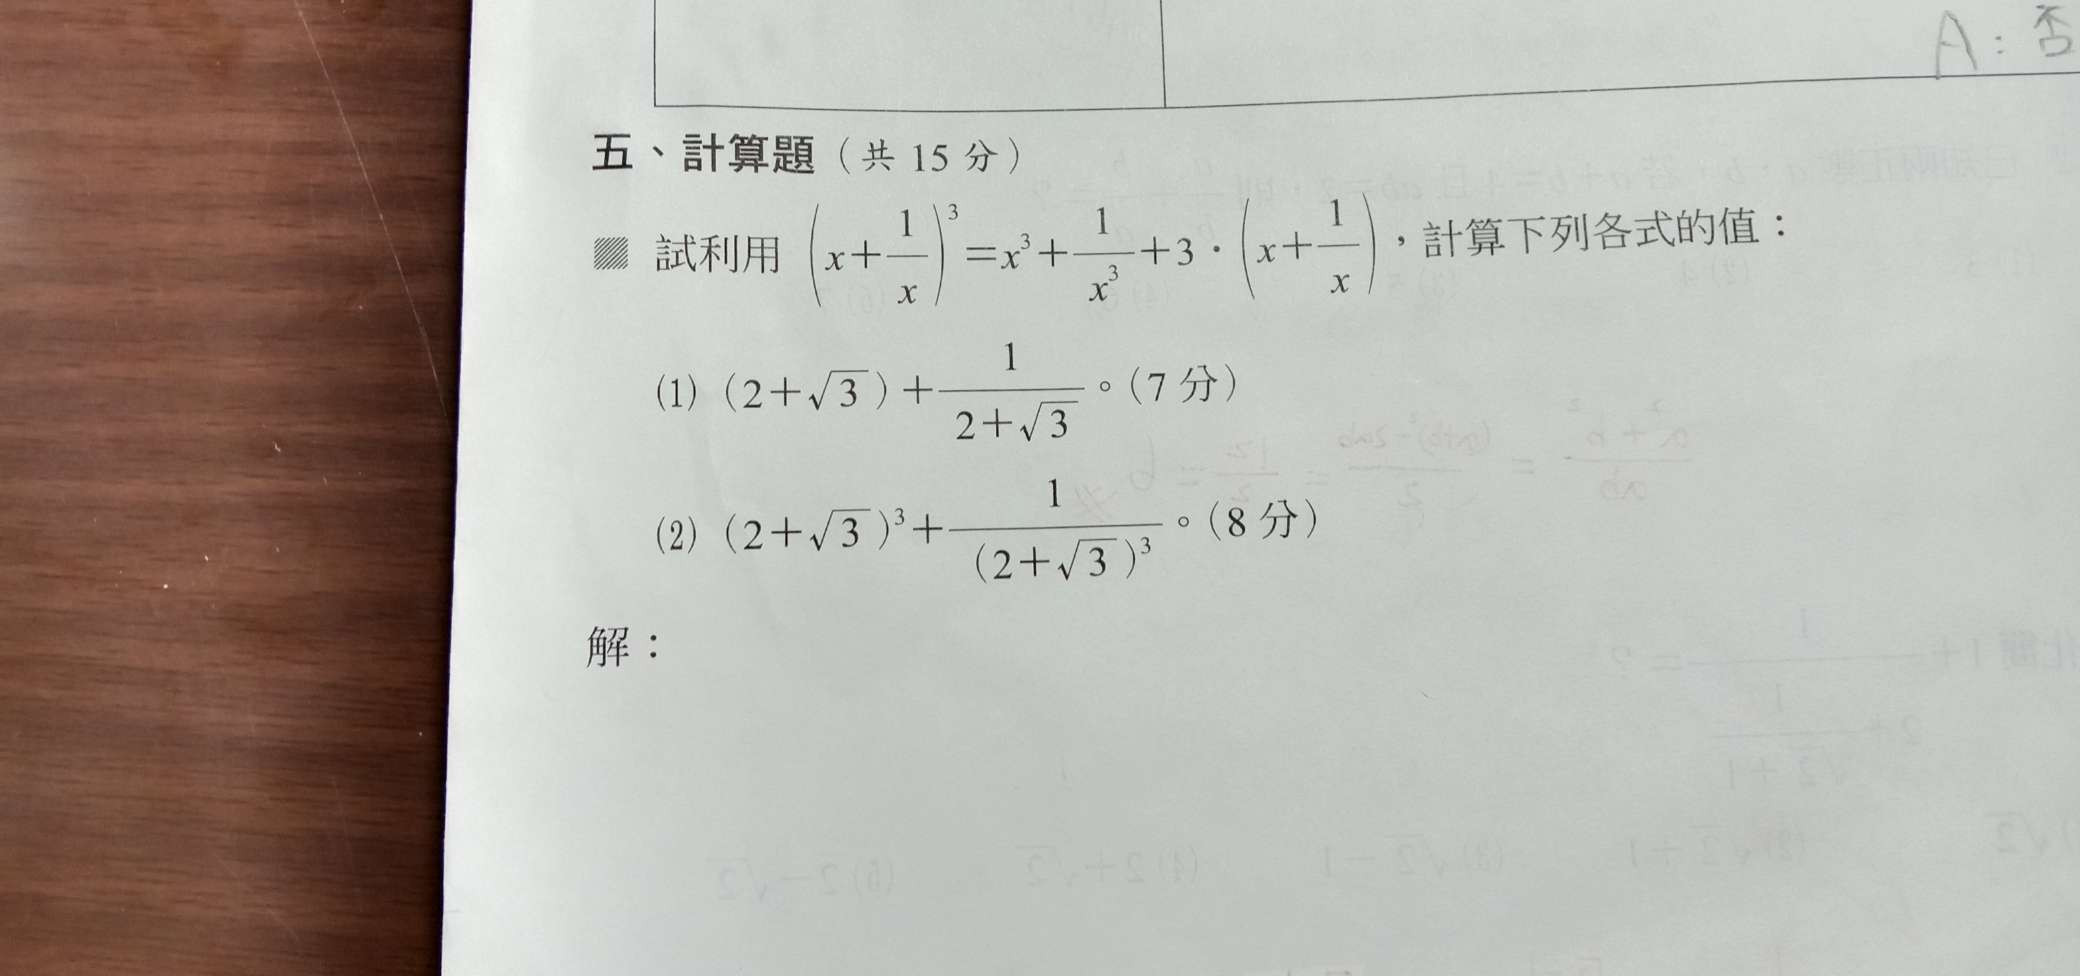 A：否
五、計算題（共 15 分）
試利用 (x+1/x)³=x³+1/x³+3·(x+1/x)，計算下列各式的值：
(1)（2+√3）+1/(2+√3)。（7 分）
(2)（2+√3）³+1/(2+√3)³。（8 分）
解：